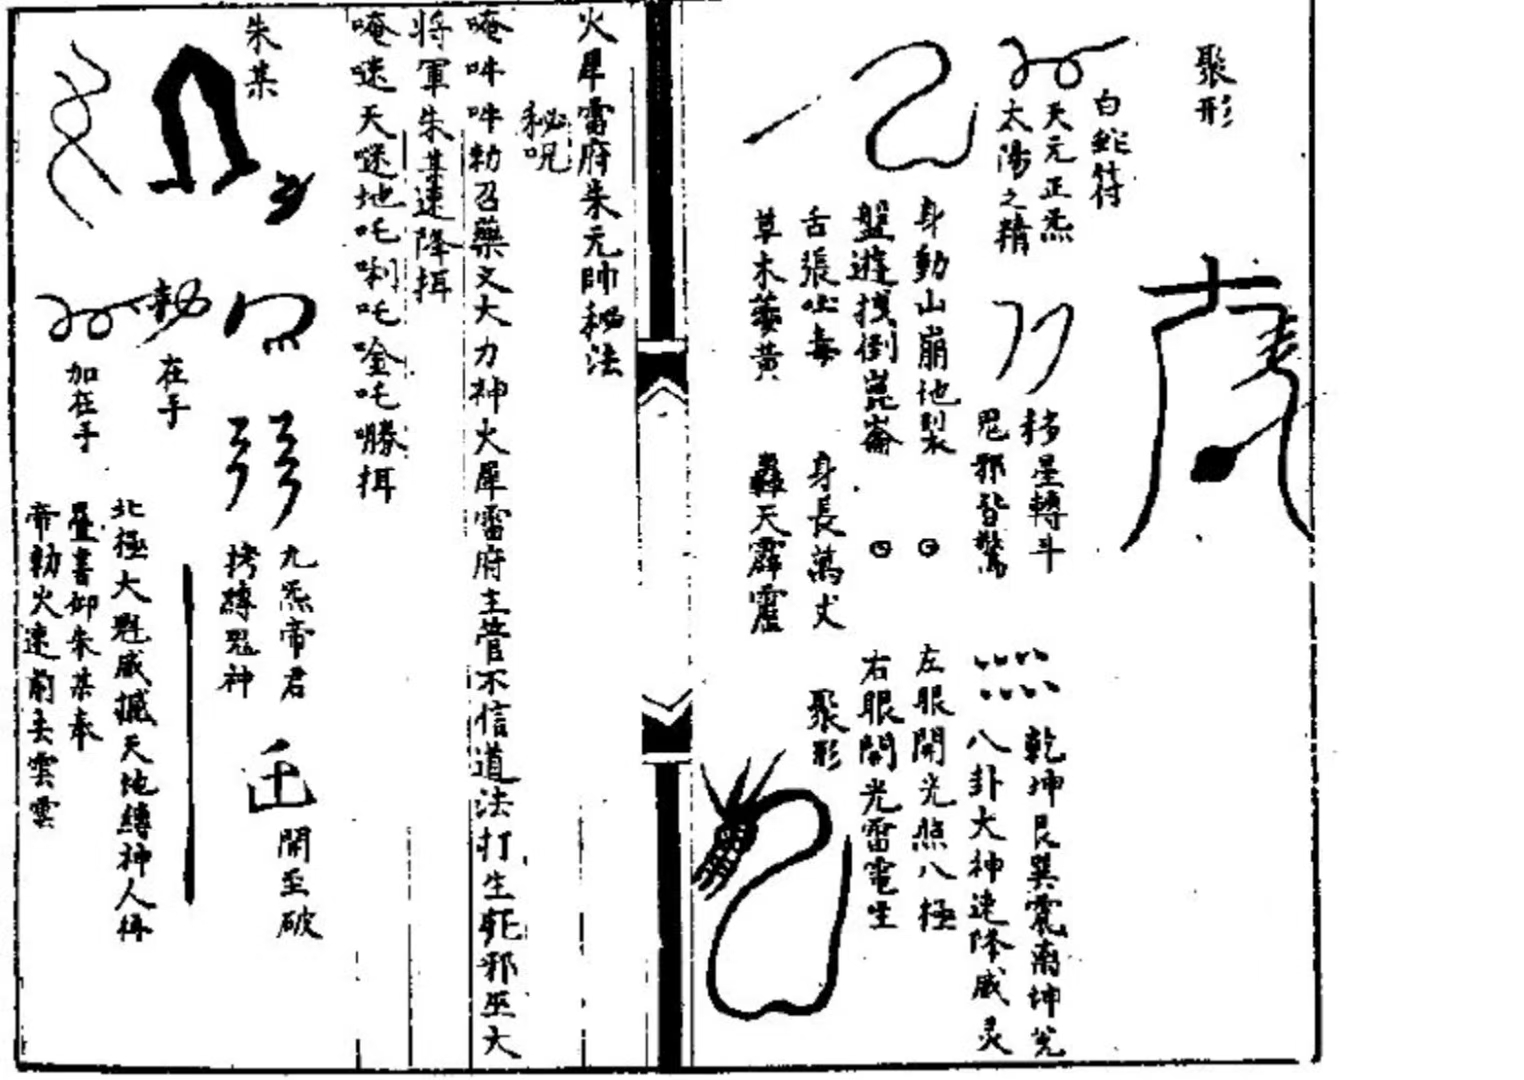 聚形
白蛇符
天元正炁
太陽之精
移星轉斗
鬼邪皆驚
乾坤艮巽震离坤兌
八卦大神速降威灵
身動山崩地裂
盤遊找倒崑崙
舌張吐毒
草木萎黃
左眼開光照八極
右眼開光雷電生
身長萬丈
轟天霹靂
聚形
火犀雷府朱元帥秘法
秘呪
唵吽吽勅召藥叉大力神火犀雷府主管不信道法打生駞邪巫大
将軍朱某速降揖
唵𠰷天𠰷地吒唎吒唫吒嘞揖
朱某
九炁帝君
拷縛鬼神
開至破
勅
在手
加在手
北極大魁威撼天地縛神人
疊書仰朱某奉
帝勅火速前去云云